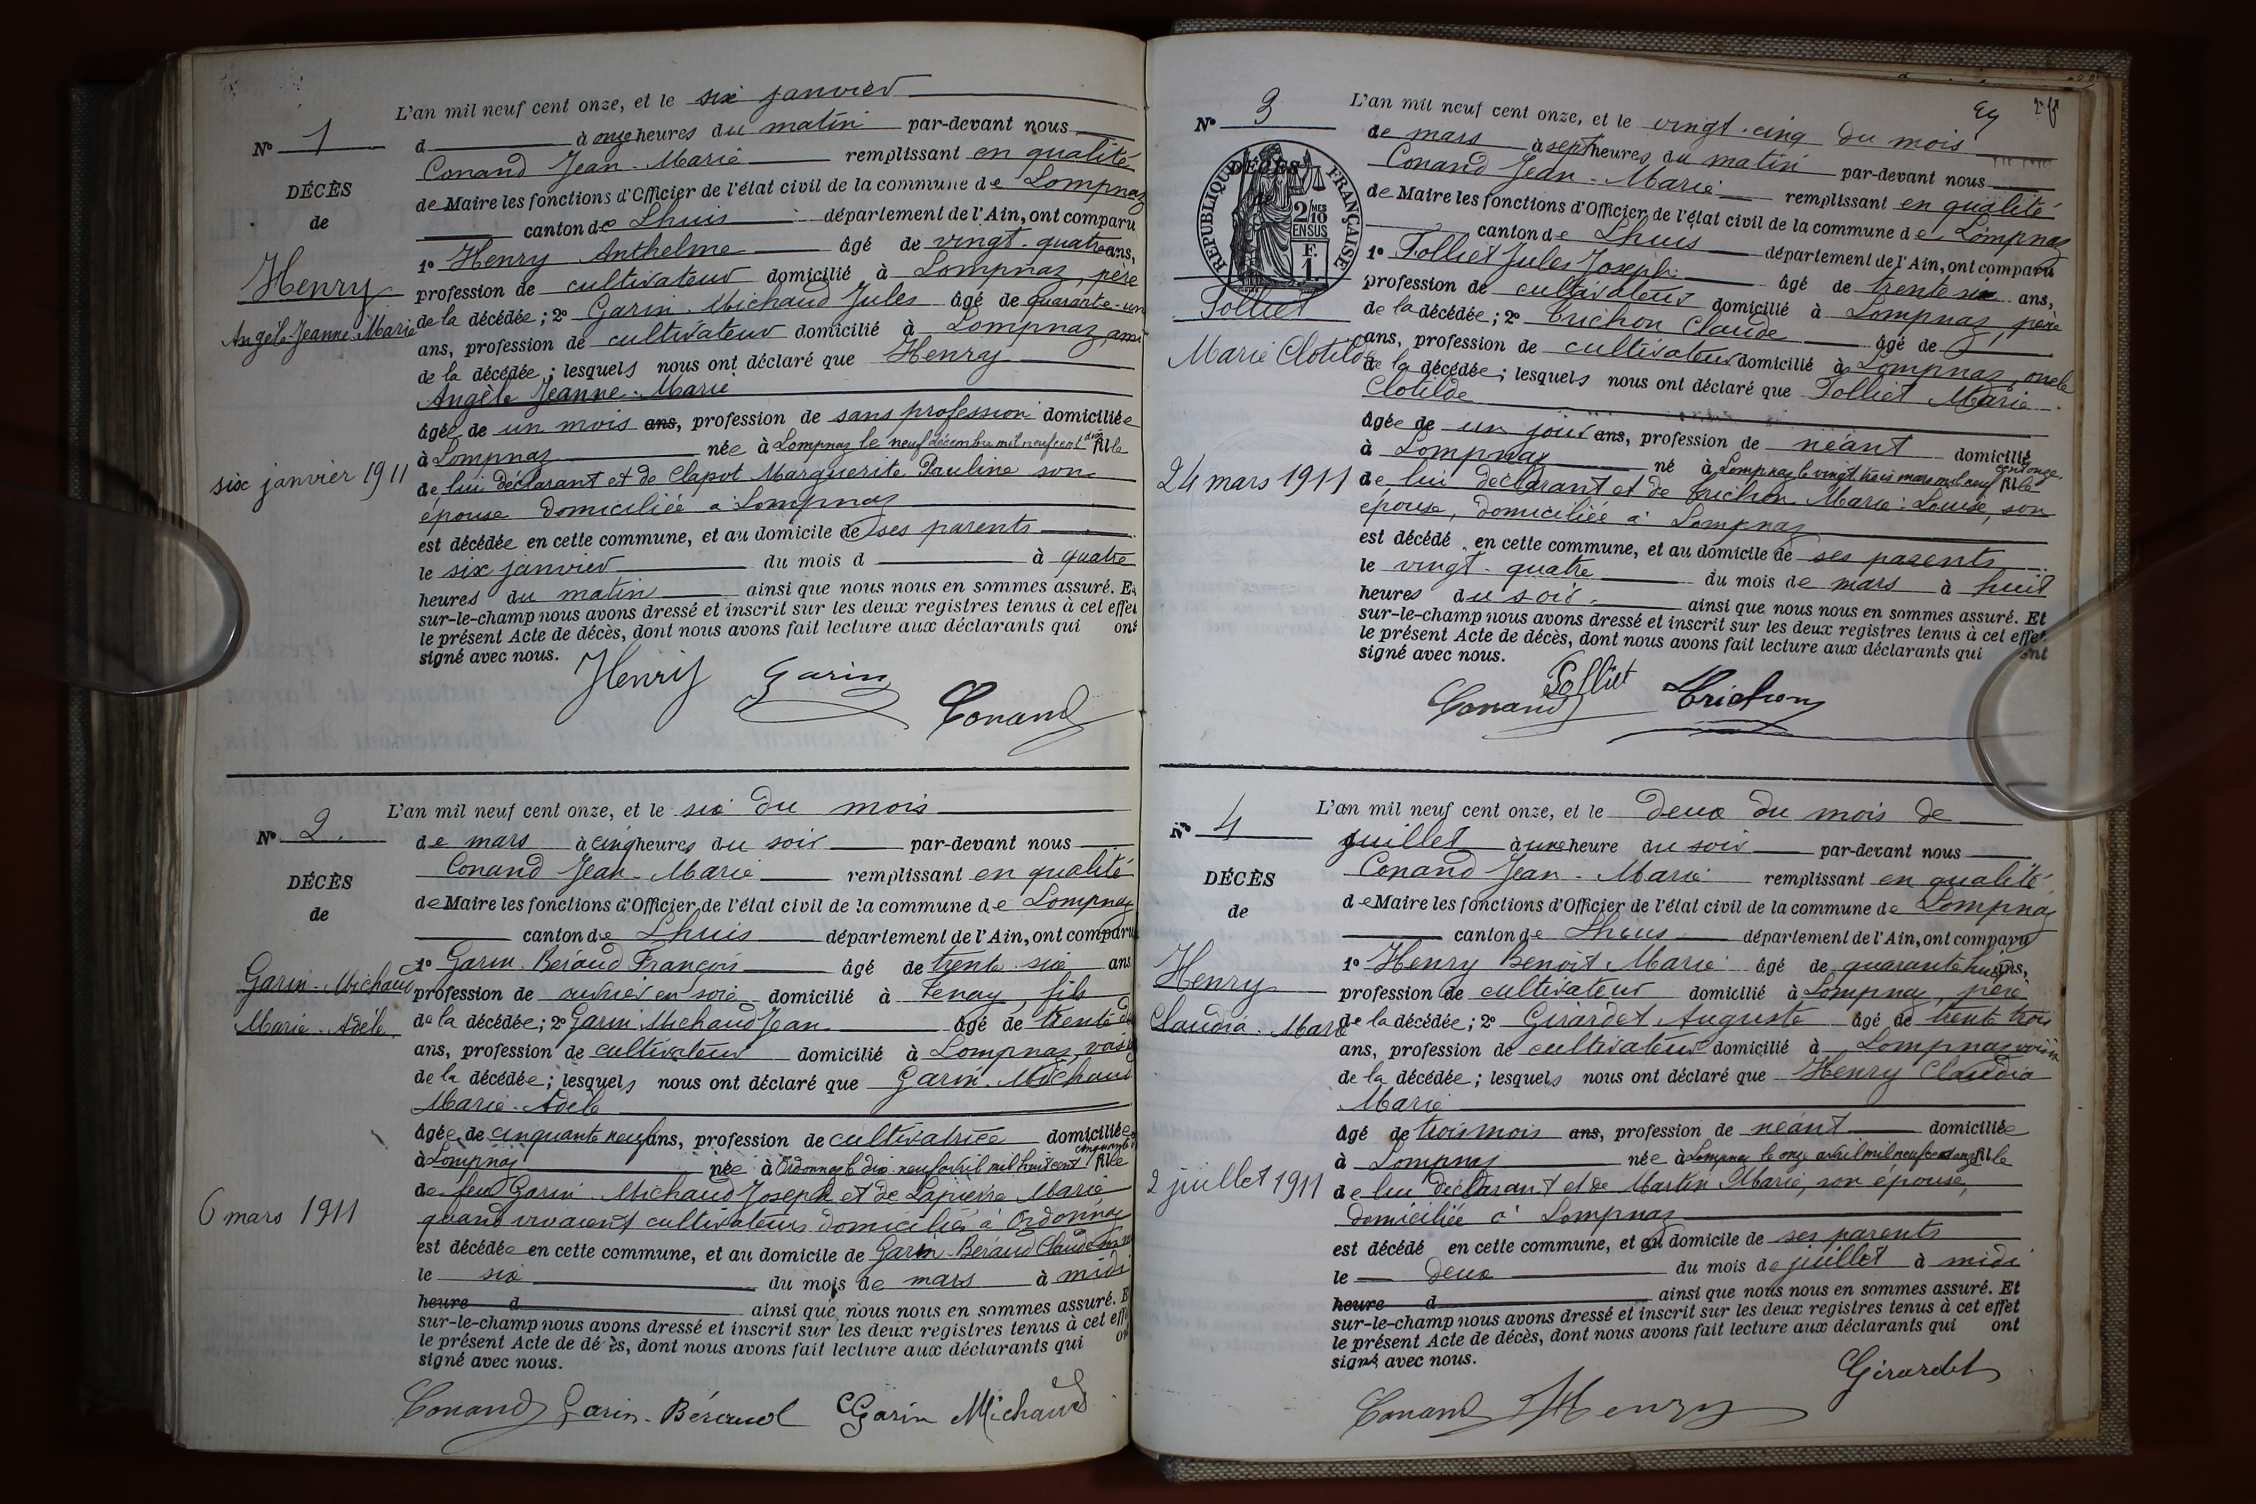 L'an mil neuf cent onze, et le six janvier
N° 1
d à onze heures du matin par-devant nous
Conand Jean-Marie remplissant en qualité
DÉCÈS
de Maire les fonctions d'Officier de l'état civil de la commune de Lompnaz
de
canton de Lhuis département de l'Ain, ont comparu
1° Henry Anthelme âgé de vingt-quatre ans,
Henry
profession de cultivateur domicilié à Lompnaz, père
Angèle-Jeanne-Marie
de la décédée; 2° Garin-Michaud Jules âgé de quarante-un
ans, profession de cultivateur domicilié à Lompnaz, ami
de la décédée; lesquels nous ont déclaré que Henry
Angèle Jeanne-Marie
âgée de un mois ans, profession de sans profession domiciliée
à Lompnaz née à Lompnaz le neuf décembre mil neuf cent dix fille
six janvier 1911
de lui déclarant et de Clapot Marguerite Pauline son
épouse domiciliée à Lompnaz
est décédée en cette commune, et au domicile de ses parents
le six janvier du mois d à quatre
heures du matin ainsi que nous nous en sommes assuré. Et
sur-le-champ nous avons dressé et inscrit sur les deux registres tenus à cet effet
le présent Acte de décès, dont nous avons fait lecture aux déclarants qui ont
signé avec nous.
Henry Garin Conand
L'an mil neuf cent onze, et le six du mois
N° 2.
de mars à cinq heures du soir par-devant nous
Conand Jean-Marie remplissant en qualité
DÉCÈS
de Maire les fonctions d'Officier de l'état civil de la commune de Lompnaz
de
canton de Lhuis département de l'Ain, ont comparu
1° Garin-Béraud François âgé de trente-six ans
Garin-Michaud
profession de ouvrier en soie domicilié à Tenay, fils
Marie-Adèle
de la décédée; 2° Garin Michaud Jean âgé de trente
ans, profession de cultivateur domicilié à Lompnaz,
de la décédée; lesquels nous ont déclaré que Garin-Michaud
Marie-Adèle
âgée de cinquante neuf ans, profession de cultivatrice domiciliée
à Lompnaz née à Ordonnaz le dix-neuf avril mil huit cent fille
de feu Garin-Michaud Joseph et de Lapierre Marie
6 mars 1911
quand vivaient cultivateurs domiciliés à Ordonnaz
est décédée en cette commune, et au domicile de Garin-Béraud
le six du mois de mars à midi
heure d ainsi que nous nous en sommes assuré. E
sur-le-champ nous avons dressé et inscrit sur les deux registres tenus à cet effe
le présent Acte de dé ès, dont nous avons fait lecture aux déclarants qui on
signé avec nous.
Conand Garin-Béraud Garin Michaud
L'an mil neuf cent onze, et le vingt-cinq du mois
N° 3
de mars à sept heures du matin par-devant nous
Conand Jean-Marie remplissant en qualité
DÉCÈS
de
RÉPUBLIQUE FRANÇAISE
2/10 MES EN SUS
F. 1.
de Maire les fonctions d'Officier de l'état civil de la commune de Lompnaz
canton de Lhuis département de l'Ain, ont comparu
1° Folliet Jules Joseph âgé de trente six ans,
profession de cultivateur domicilié à Lompnaz, père
Folliet
de la décédée; 2° Trichon Claude âgé de
Marie Clotilde
ans, profession de cultivateur domicilié à Lompnaz, oncle
de la décédée; lesquels nous ont déclaré que Folliet Marie
Clotilde
âgée de un jour ans, profession de néant domicilié
à Lompnaz né à Lompnaz le vingt trois mars mil neuf cent onze fille
24 mars 1911
de lui déclarant et de Trichon Marie-Louise, son
épouse, domiciliée à Lompnaz
est décédé en cette commune, et au domicile de ses parents
le vingt-quatre du mois de mars à huit
heures du soir ainsi que nous nous en sommes assuré. Et
sur-le-champ nous avons dressé et inscrit sur les deux registres tenus à cet effet
le présent Acte de décès, dont nous avons fait lecture aux déclarants qui ont
signé avec nous.
Conand Folliet Trichon
L'an mil neuf cent onze, et le deux du mois de
N° 4
juillet à une heure du soir par-devant nous
Conand Jean-Marie remplissant en qualité
DÉCÈS
de Maire les fonctions d'Officier de l'état civil de la commune de Lompnaz
de
canton de Lhuis département de l'Ain, ont comparu
1° Henry Benoit Marie âgé de quarante huit ans,
Henry
profession de cultivateur domicilié à Lompnaz, père
Claudia-Marie
de la décédée; 2° Girardet Auguste âgé de trente trois
ans, profession de cultivateur domicilié à Lompnaz voisin
de la décédée; lesquels nous ont déclaré que Henry Claudia
Marie
âgé de trois mois ans, profession de néant domiciliée
à Lompnaz née à Lompnaz le onze avril mil neuf cent onze fille
2 juillet 1911
de lui déclarant et de Martin Marie, son épouse,
domiciliée à Lompnaz
est décédé en cette commune, et au domicile de ses parents
le deux du mois de juillet à midi
heure d ainsi que nous nous en sommes assuré. Et
sur-le-champ nous avons dressé et inscrit sur les deux registres tenus à cet effet
le présent Acte de décès, dont nous avons fait lecture aux déclarants qui ont
signé avec nous.
Girardet
Conand Henry